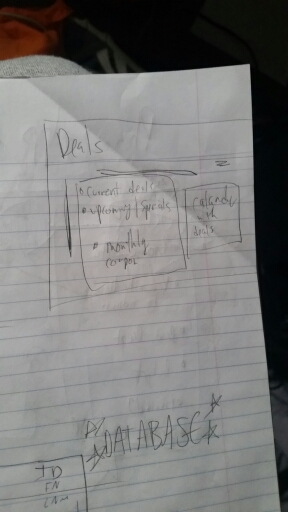 Deals
• Current deals
• upcoming / specials
• monthly
calanda
deals
DATABASE
ID
FN